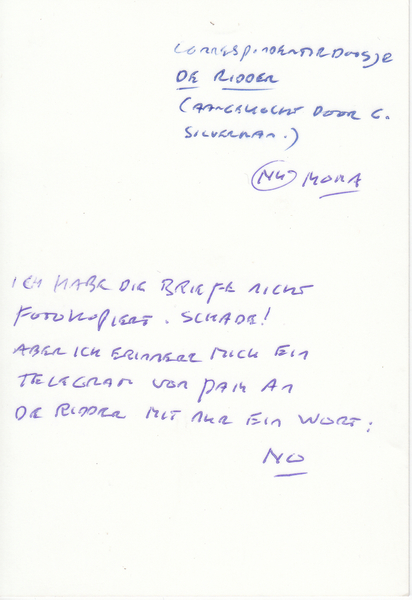 CORRESPONDENTIEDOOSJE
DE RIDDER
(AANGEKOCHT DOOR G.
SILVERMAN.)
(NU) MOMA
ICH HABE DIE BRIEFE NICHT
FOTOKOPIERT. SCHADE!
ABER ICH ERINNERE MICH EIN
TELEGRAM VON PAIK AN
DE RIDDER MIT NUR EIN WORT:
NO